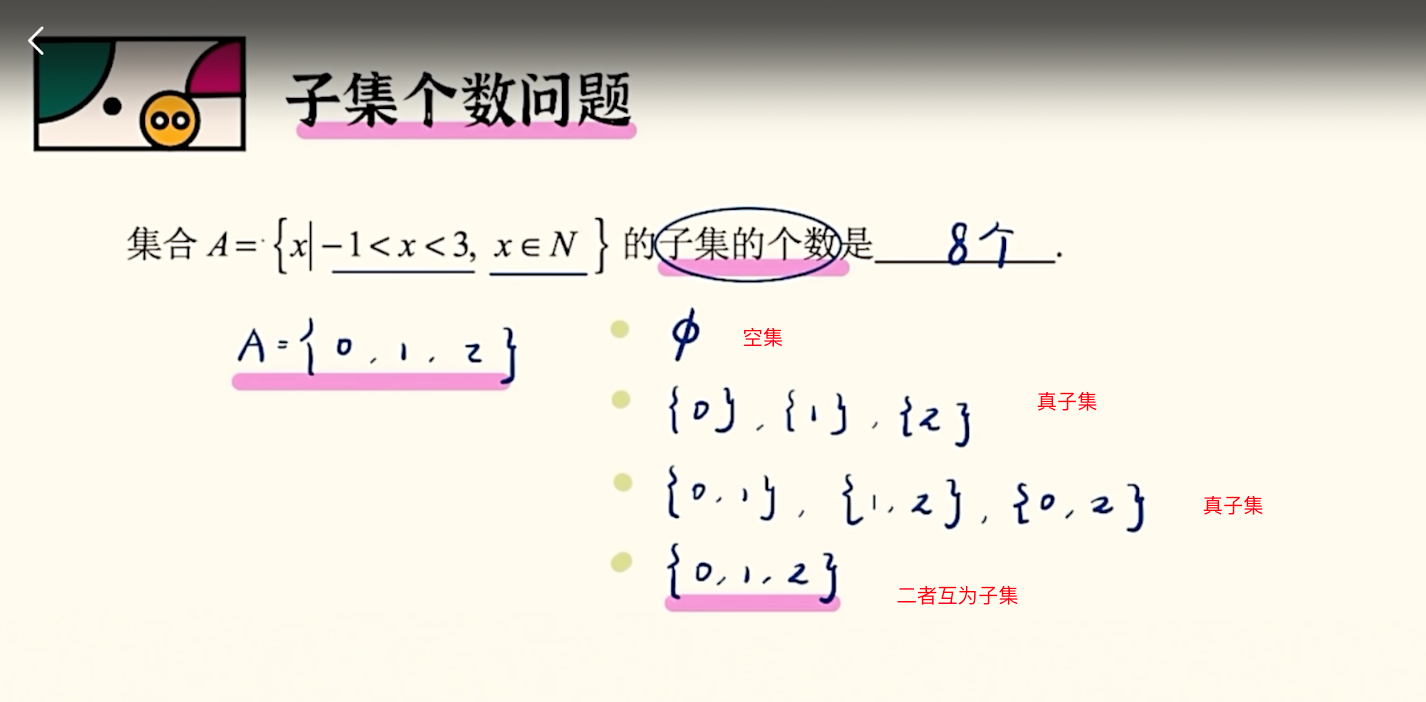 子集个数问题
集合 A = {x| −1 < x < 3, x ∈ N } 的子集的个数是 8个 .
A = {0, 1, 2}
ϕ 空集
{0}, {1}, {2} 真子集
{0, 1}, {1, 2}, {0, 2} 真子集
{0, 1, 2} 二者互为子集